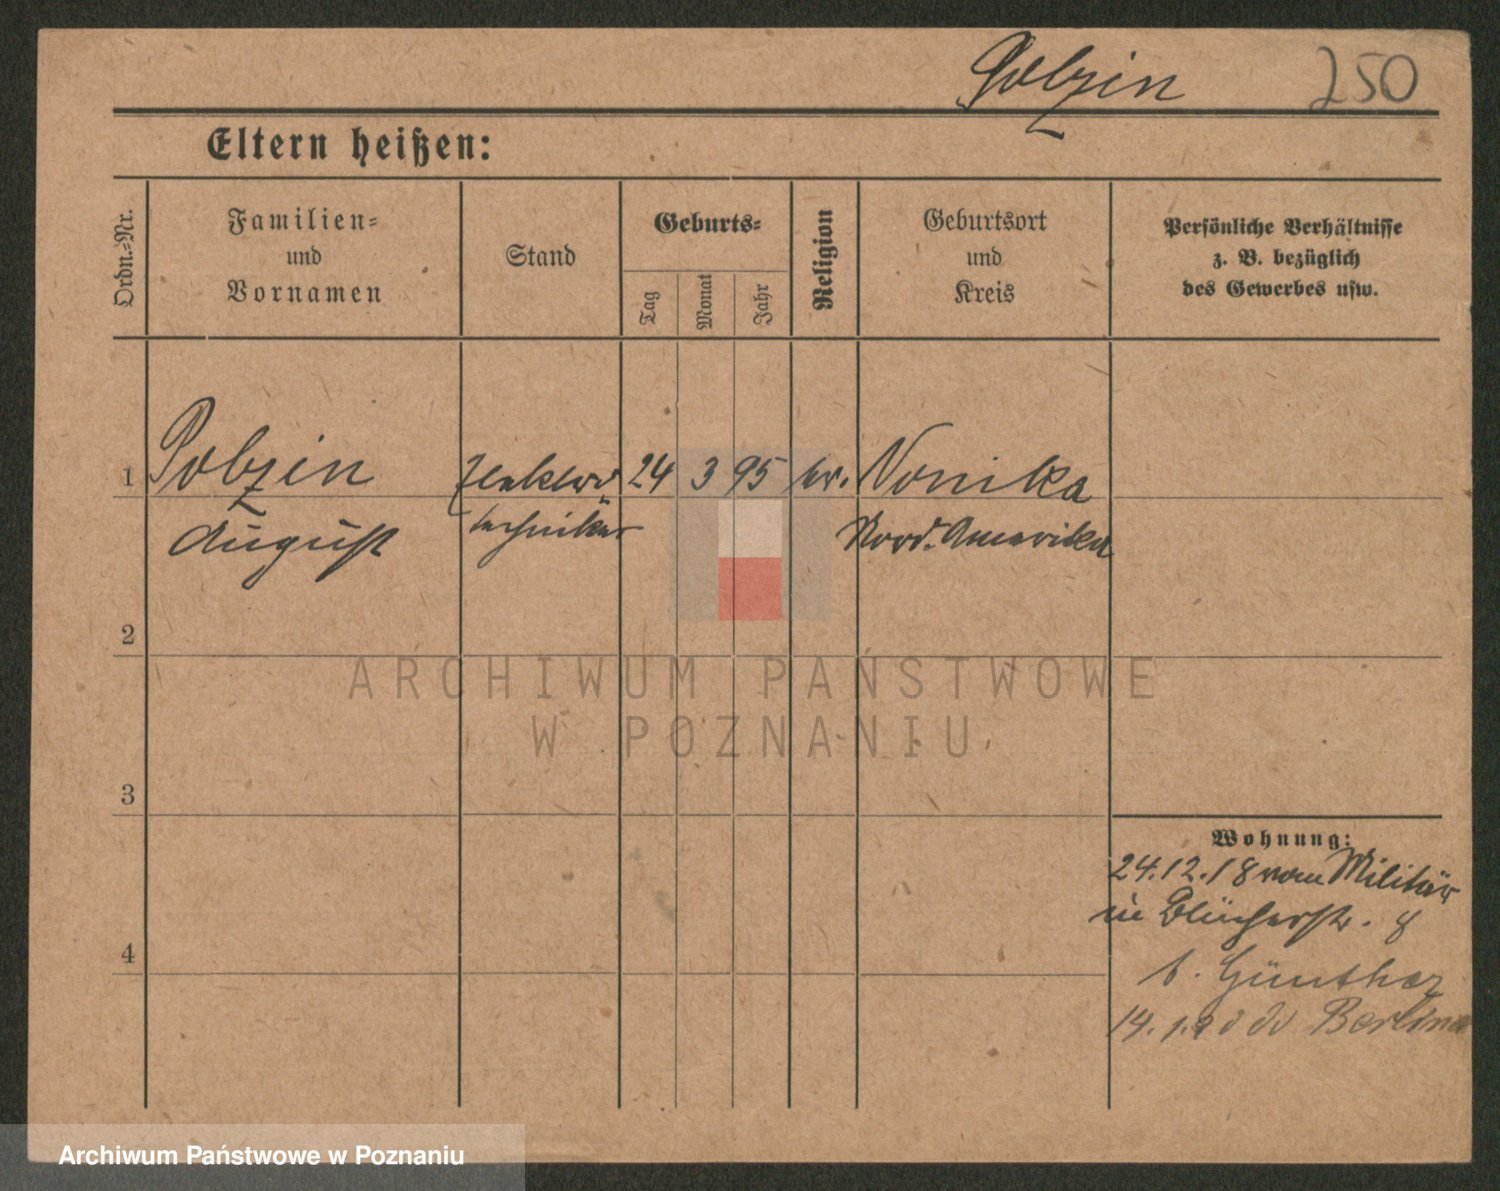 Polzin 250
Eltern heißen:
Ordn.-Nr.
Familien-
und
Vornamen
Stand
Geburts-
Tag
Monat
Jahr
Religion
Geburtsort
und
Kreis
Persönliche Verhältnisse
z. B. bezüglich
des Gewerbes usw.
1 Polzin Elektro 24 3 95 ev. Nonika
August techniker Nord. Amerika
2
3
4
Wohnung:
24.12.18 vom Militär
in Blücherstr. 8
b. Günther
14. Berlin
ARCHIWUM PAŃSTWOWE
W POZNANIU
Archiwum Państwowe w Poznaniu